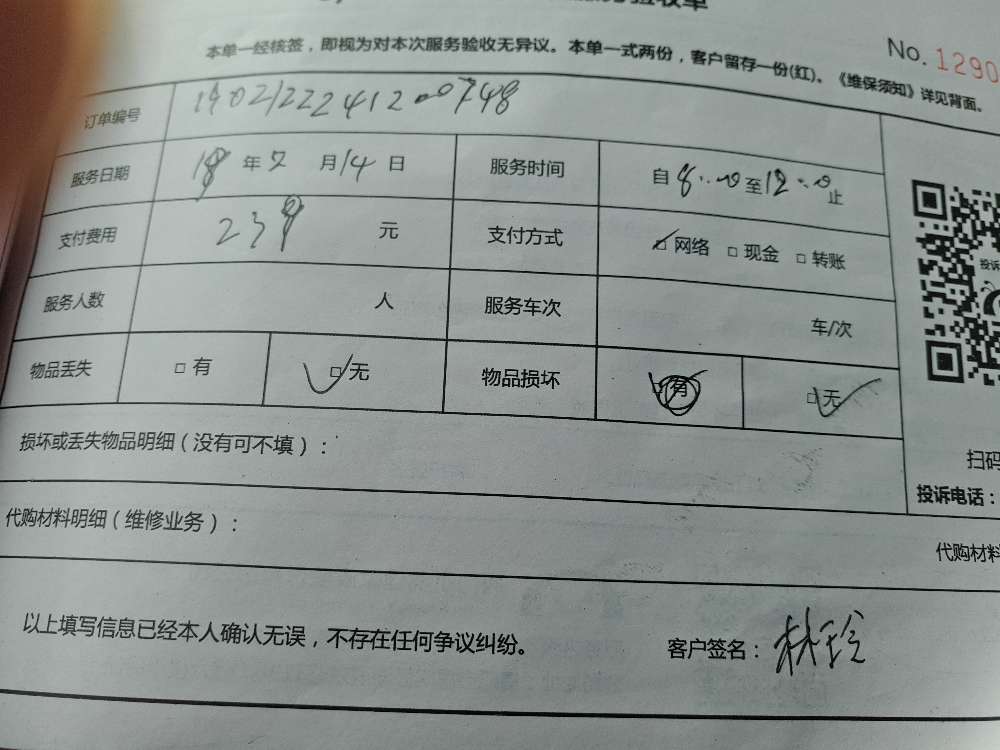 验收单
No. 1290
本单一经核签，即视为对本次服务验收无异议。本单一式两份，客户留存一份(红)。《维保须知》详见背面。
订单编号
服务日期 年 月14日 服务时间 自8:00至12:00止
支付费用 239 元 支付方式 □网络 □现金 □转账
服务人数 人 服务车次 车/次
物品丢失 □有 □无 物品损坏 □有 □无
投诉
损坏或丢失物品明细（没有可不填）：
扫码
投诉电话：
代购材料明细（维修业务）：
代购材料
以上填写信息已经本人确认无误，不存在任何争议纠纷。 客户签名：林玲